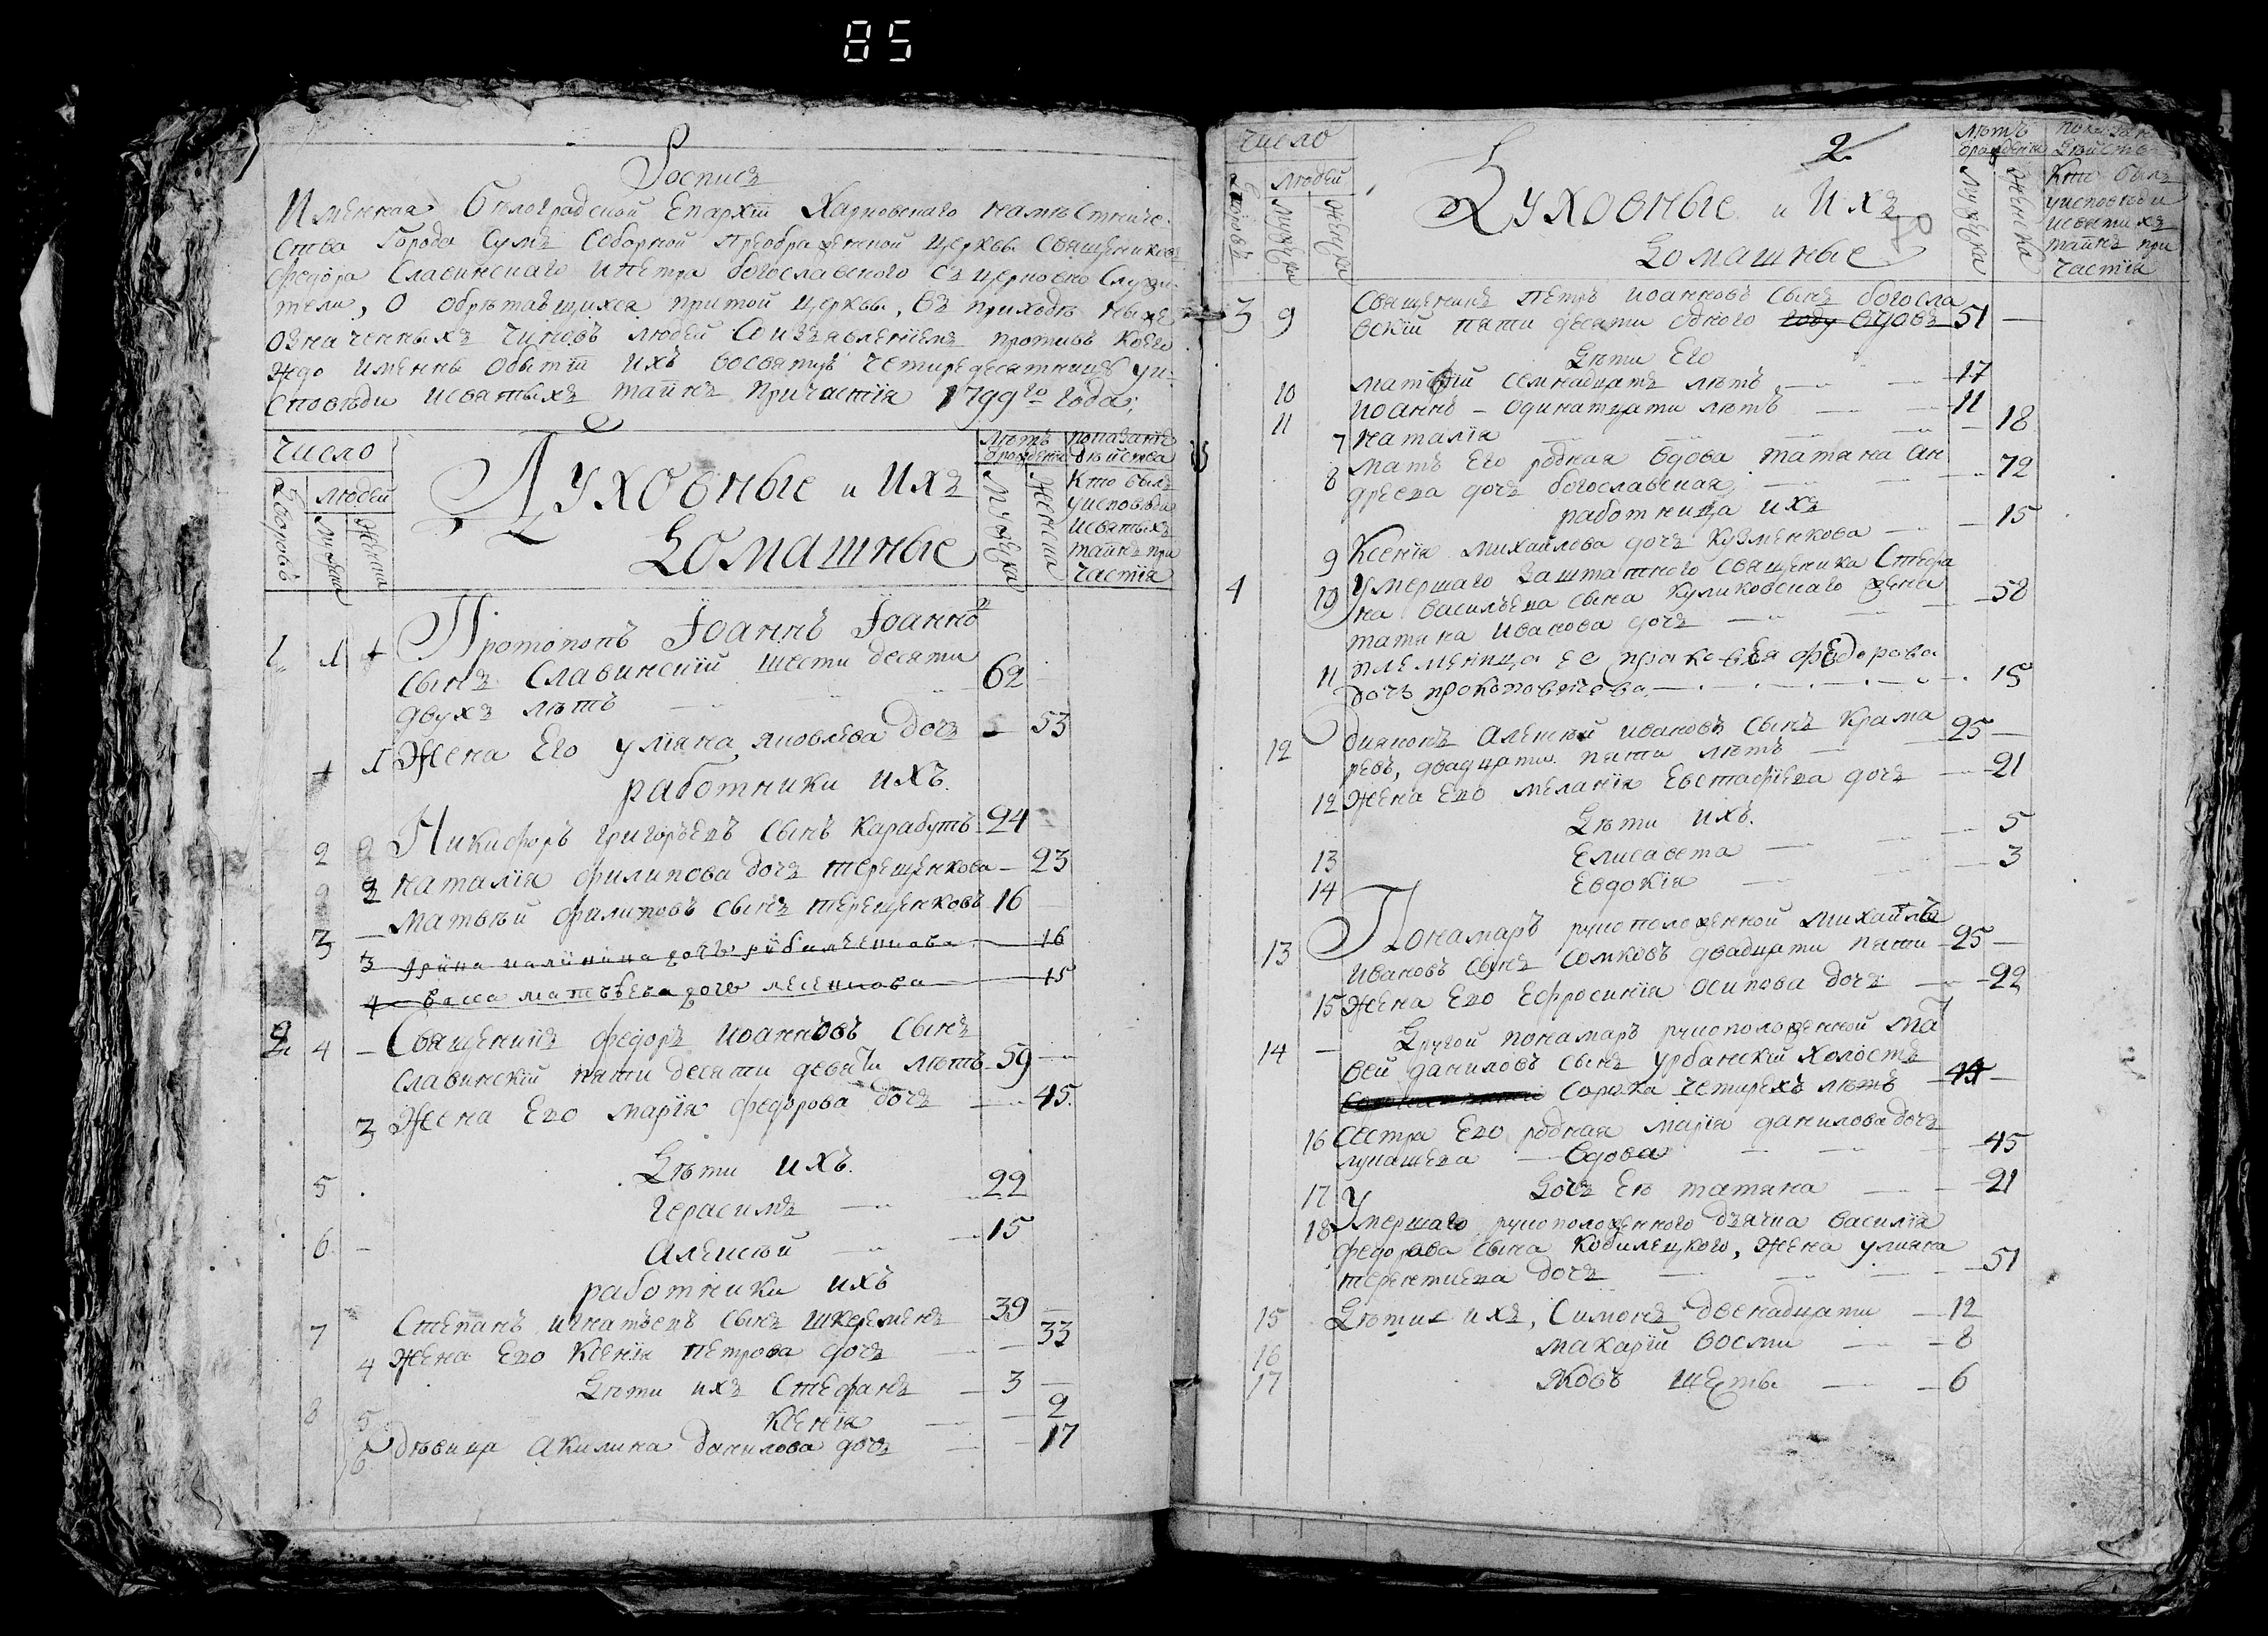 85
Роспись
Именная Белоградской Епархіи Харковскаго намѣстниче-
ства Города Сумъ Соборной Преображенской церкви Священиковъ
Федора Славинскаго и Петра богославского съ церковно Служи-
тели, о обрѣтающихся при той церкви, въ приходѣ ниже
означенныхъ чиновъ людей Со изъявленіемъ противъ коего
ждо имены о бытіи ихъ во святую четиредесятницу у и-
споведи и святыхъ таинъ Причастія 1799го Года;
число
Дворовъ
людей
мужска
женска
Духовные и Ихъ
Домашные
лѣтъ
врожденія
мужска
женска
показаніе
дѣйства
Кто былъ
у исповѣди
и святыхъ
таинъ при
частія
1 1 Протопопъ Іоаннъ Іоаннов
сынъ Славинскій шести десяти
двухъ лѣтъ 62
1 Жена Его Уліяна яковлева дочъ 53
работники ихъ.
2 Никифоръ Григорьевъ сынъ Карабутъ 24
2 Наталія филипова дочъ терещенкова 23
3 Матвѣй филиповъ сынъ терещенковъ 16
3 16
4 Васса матвѣева дочь 15
2 4 Священикъ федоръ иоанновъ сынъ
Славинскій пяти десяти девяти лѣтъ 59
3 Жена Его марія федорова дочъ 45
Дѣти ихъ.
5 Герасимъ 22
6 Алексѣй 15
работники ихъ
7 Степанъ игнатьевъ сынъ 39
4 Жена Его Ксенія Петрова дочъ 33
8 Дѣти ихъ Стефанъ 3
5 Ксенія 2
6 дѣвица Акилина данилова дочъ 17
число
Дворовъ
людей
мужска
женска
2
Духовные и Ихъ
Домашные
лѣтъ
врожденія
мужска
женска
Кто былъ
у исповѣди
и святыхъ
таинъ при
частія
3 9 Священикъ петръ иоанновъ сынъ богосла
вскій пяти десяти одного году вдовъ 51
Дѣти Его
10 матфій семнадцать лѣтъ 17
11 иоаннъ - одинатцати лѣтъ 11
7 наталія 18
8 мать Его родная вдова татяна ан
дреева дочъ богославская 72
работница ихъ
9 Ксенія михайлова дочъ кузменкова 15
4 10 Умершаго заштатного священика Стефа
на васильева сына Куликовскаго жена
татяна иванова дочъ 58
11 племеница ее праковѣя федорова
дочъ 15
12 Дияконъ Алексѣй ивановъ сынъ Крама
ревъ, двадцати пяти лѣтъ 25
12 Жена Его меланія Евстафіева дочъ 21
Дѣти ихъ.
13 Елисавета 5
14 Евдокія 3
13 Понамаръ рукоположенной михайла
ивановъ сынъ Сомковъ двадцати пяти 25
15 Жена Его Ефросинія осипова дочъ 22
14 Другой понамаръ рукоположенной мат
вей даниловъ сынъ урбанскій холостъ
сорока четирехъ лѣтъ 44
16 сестра Его родная марія данилова дочъ
лукашева вдова 45
17 Дочъ Еѣ татяна 21
18 Умершаго рукоположенного дъячка василія
федорова сына Кобилецкого, жена уляна
терентиева дочъ 51
15 Дѣти ихъ, Симонъ двенадцати 12
16 макарій восми 8
17 Яковъ шесть 6